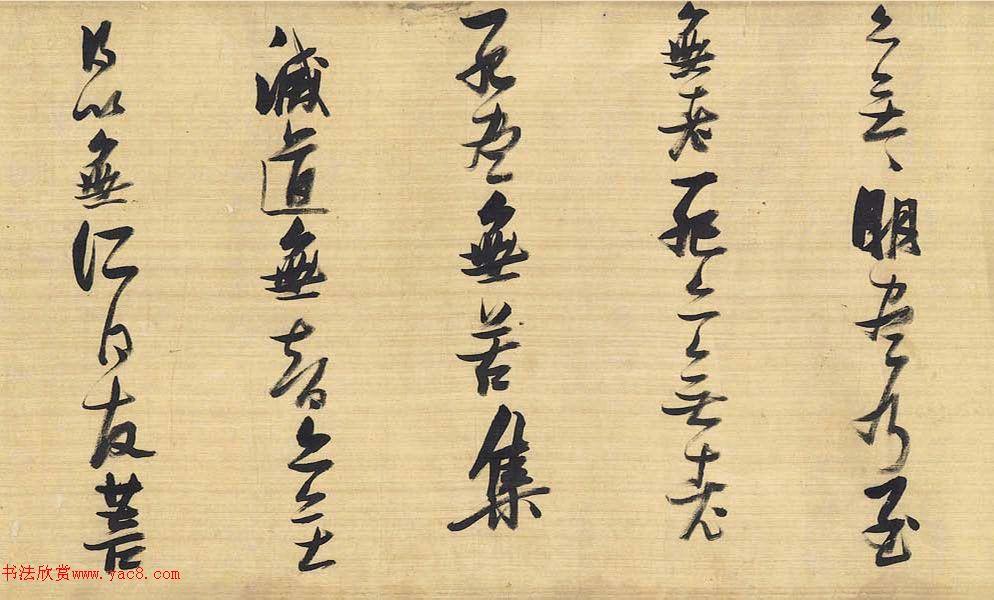 亦無〻明盡乃至
無老死亦無老
死盡無苦集
滅道無智亦無
得以無所得故菩
书法欣赏www.yac8.com